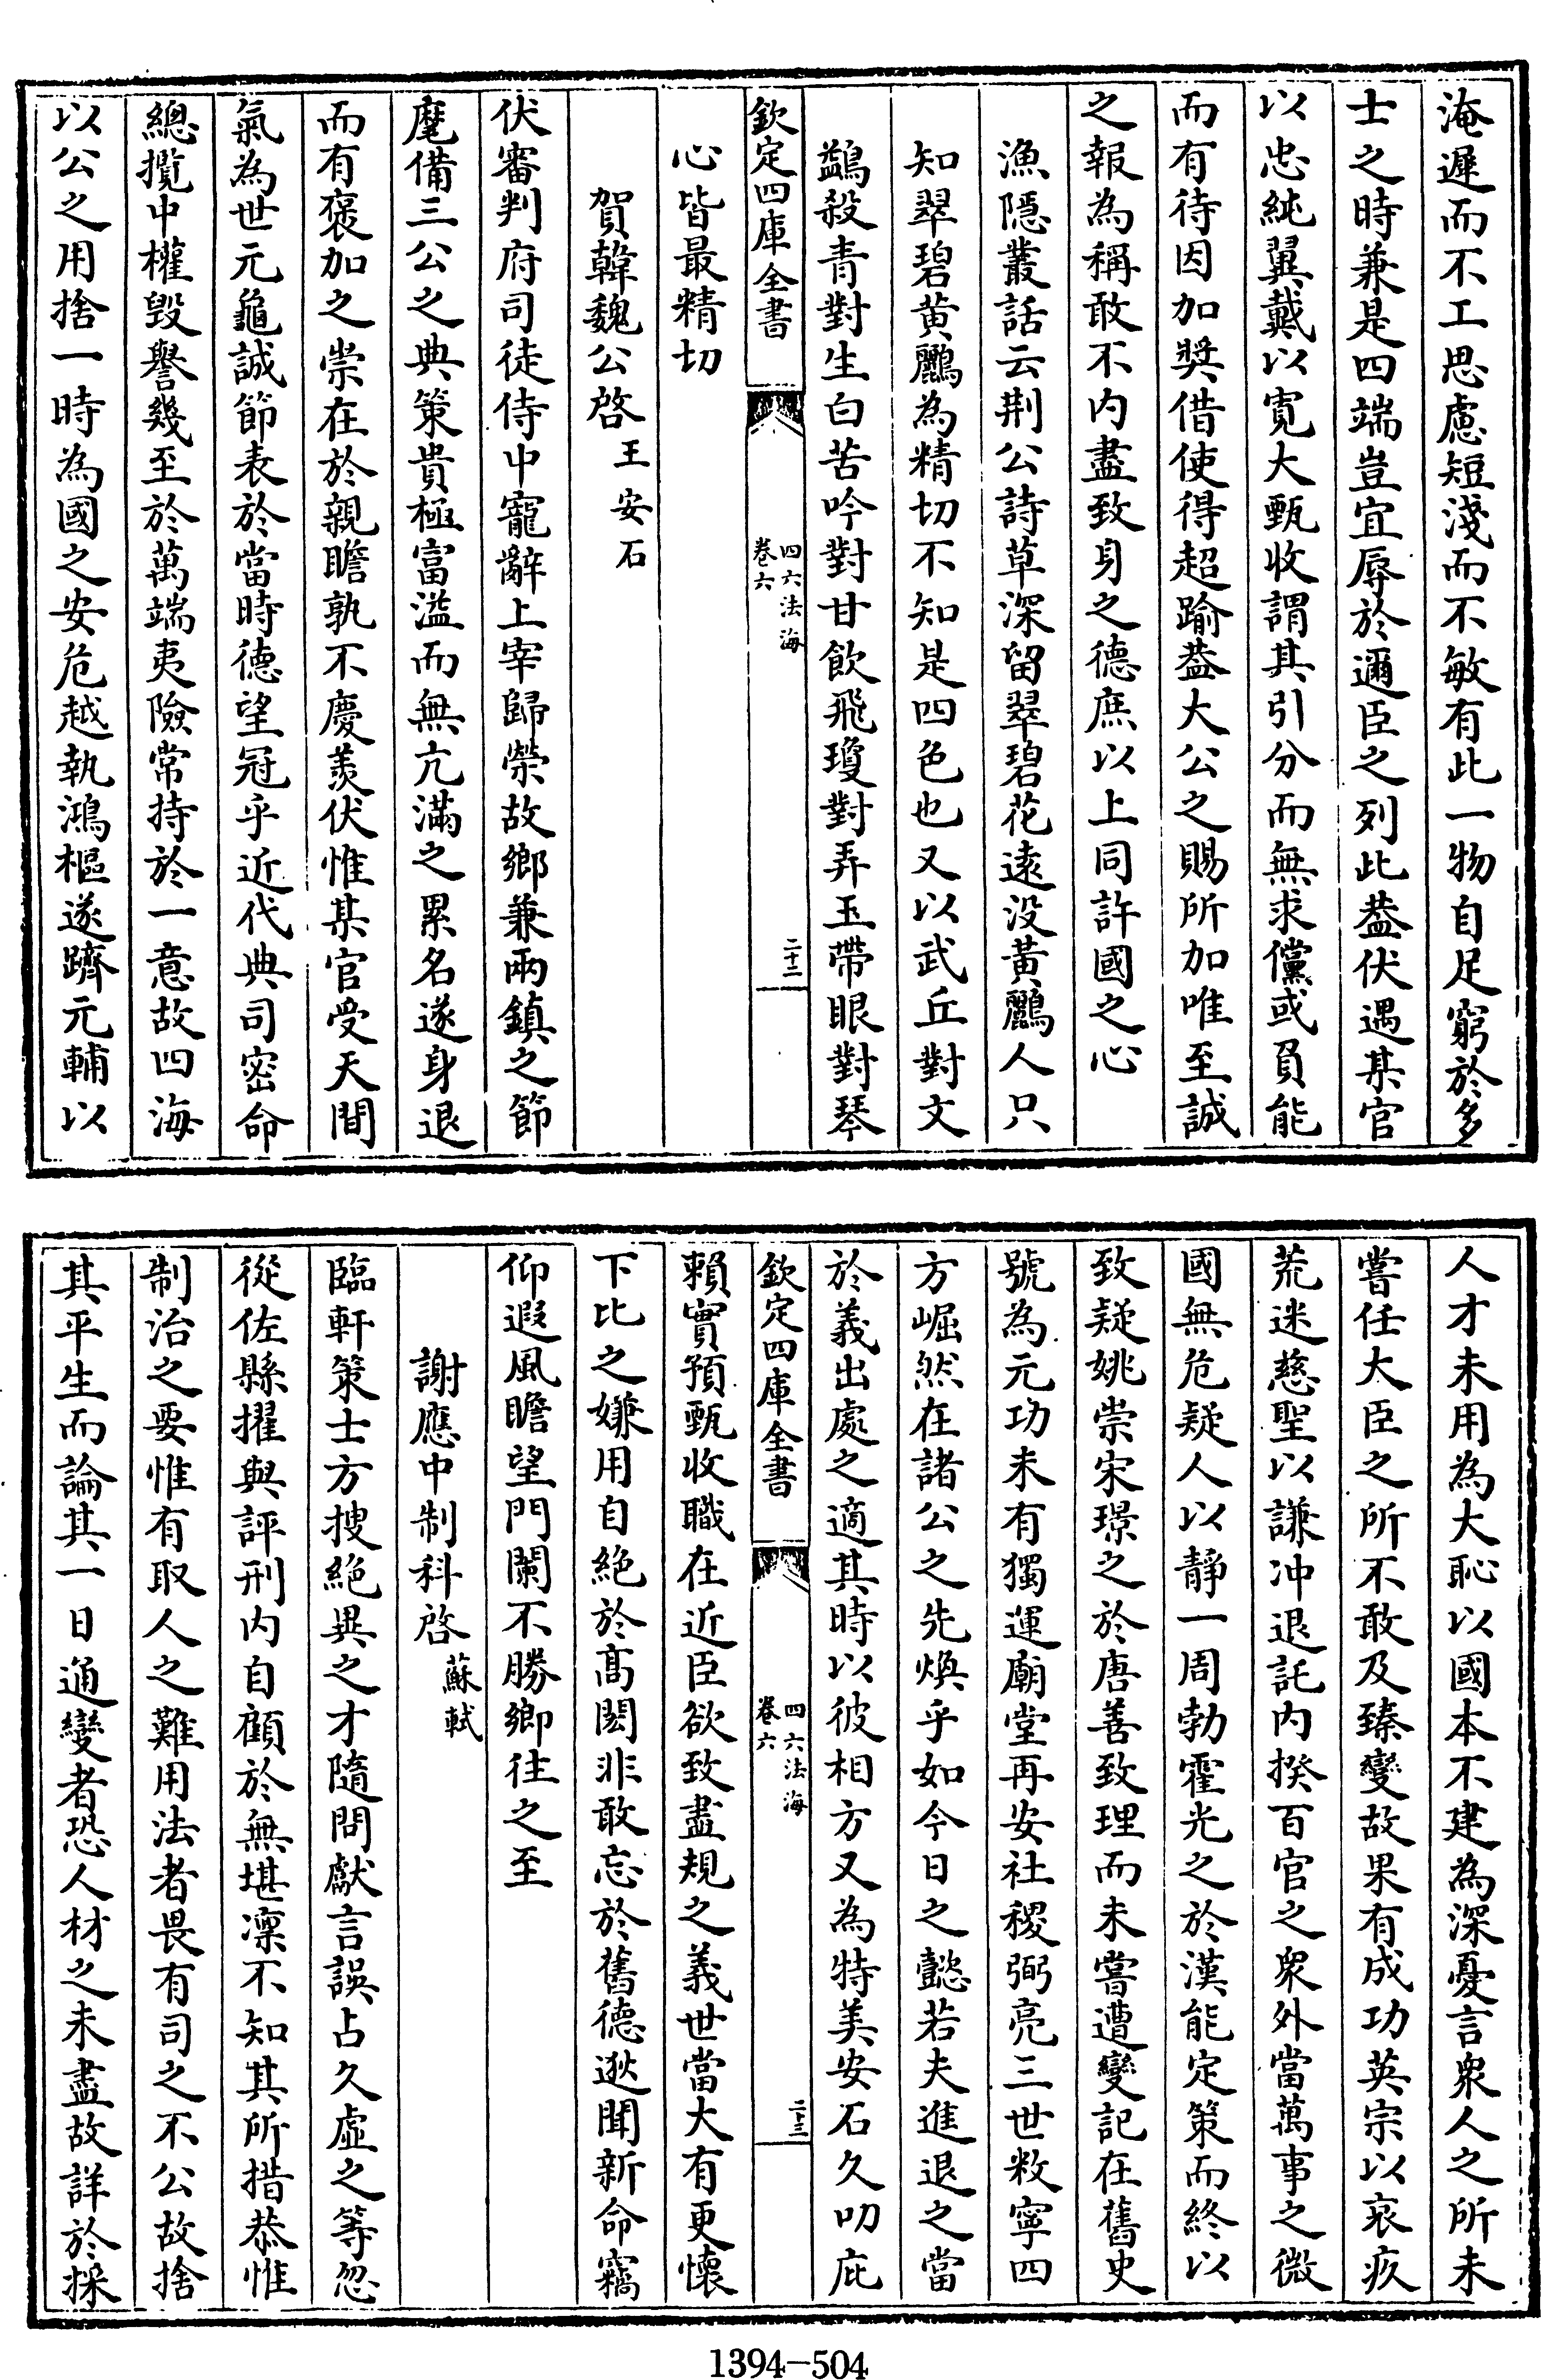 淹遲而不工思慮短淺而不敏有此一物自足窮於多
士之時兼是四端豈宜辱於邇臣之列此葢伏遇某官
以忠純翼戴以寛大甄收謂其引分而無求儻或負能
而有待因加奬借使得超踰葢大公之賜所加唯至誠
之報為稱敢不内盡致身之德庶以上同許國之心
漁隱叢話云荆公詩草深留翠碧花遠没黃鸝人只
知翠碧黄鸝為精切不知是四色也又以武丘對文
鷁殺青對生白苦吟對甘飲飛瓊對弄玉帶眼對琴
欽定四庫全書
四六法海
卷六
二十二
心皆最精切
賀韓魏公啓王安石
伏審判府司徒侍中寵辭上宰歸榮故鄉兼兩鎮之節
麾備三公之典策貴極富溢而無亢滿之累名遂身退
而有褒加之崇在於親瞻孰不慶羨伏惟某官受天間
氣為世元龜誠節表於當時德望冠乎近代典司密命
總攬中權毁譽幾至於萬端夷險常持於一意故四海
以公之用捨一時為國之安危越執鴻樞遂躋元輔以
人才未用為大恥以國本不建為深憂言衆人之所未
嘗任大臣之所不敢及臻變故果有成功英宗以哀疚
荒迷慈聖以謙冲退託内揆百官之衆外當萬事之微
國無危疑人以靜一周勃霍光之於漢能定策而終以
致疑姚崇宋璟之於唐善致理而未嘗遭變記在舊史
號為元功未有獨運廟堂再安社稷弼亮三世敉寧四
方崛然在諸公之先煥乎如今日之懿若夫進退之當
於義出處之適其時以彼相方又為特美安石久叨庇
欽定四庫全書
四六法海
卷六
二十三
賴實預甄收職在近臣欲致盡規之義世當大有更懷
下比之嫌用自絶於髙閎非敢忘於舊德逖聞新命竊
仰遐風瞻望門闌不勝鄉往之至
謝應中制科啓蘇軾
臨軒策士方搜絶異之才隨問獻言誤占久虛之等忽
從佐縣擢與評刑内自顧於無堪凛不知其所措恭惟
制治之要惟有取人之難用法者畏有司之不公故捨
其平生而論其一日通變者恐人材之未盡故詳於採
1394-504